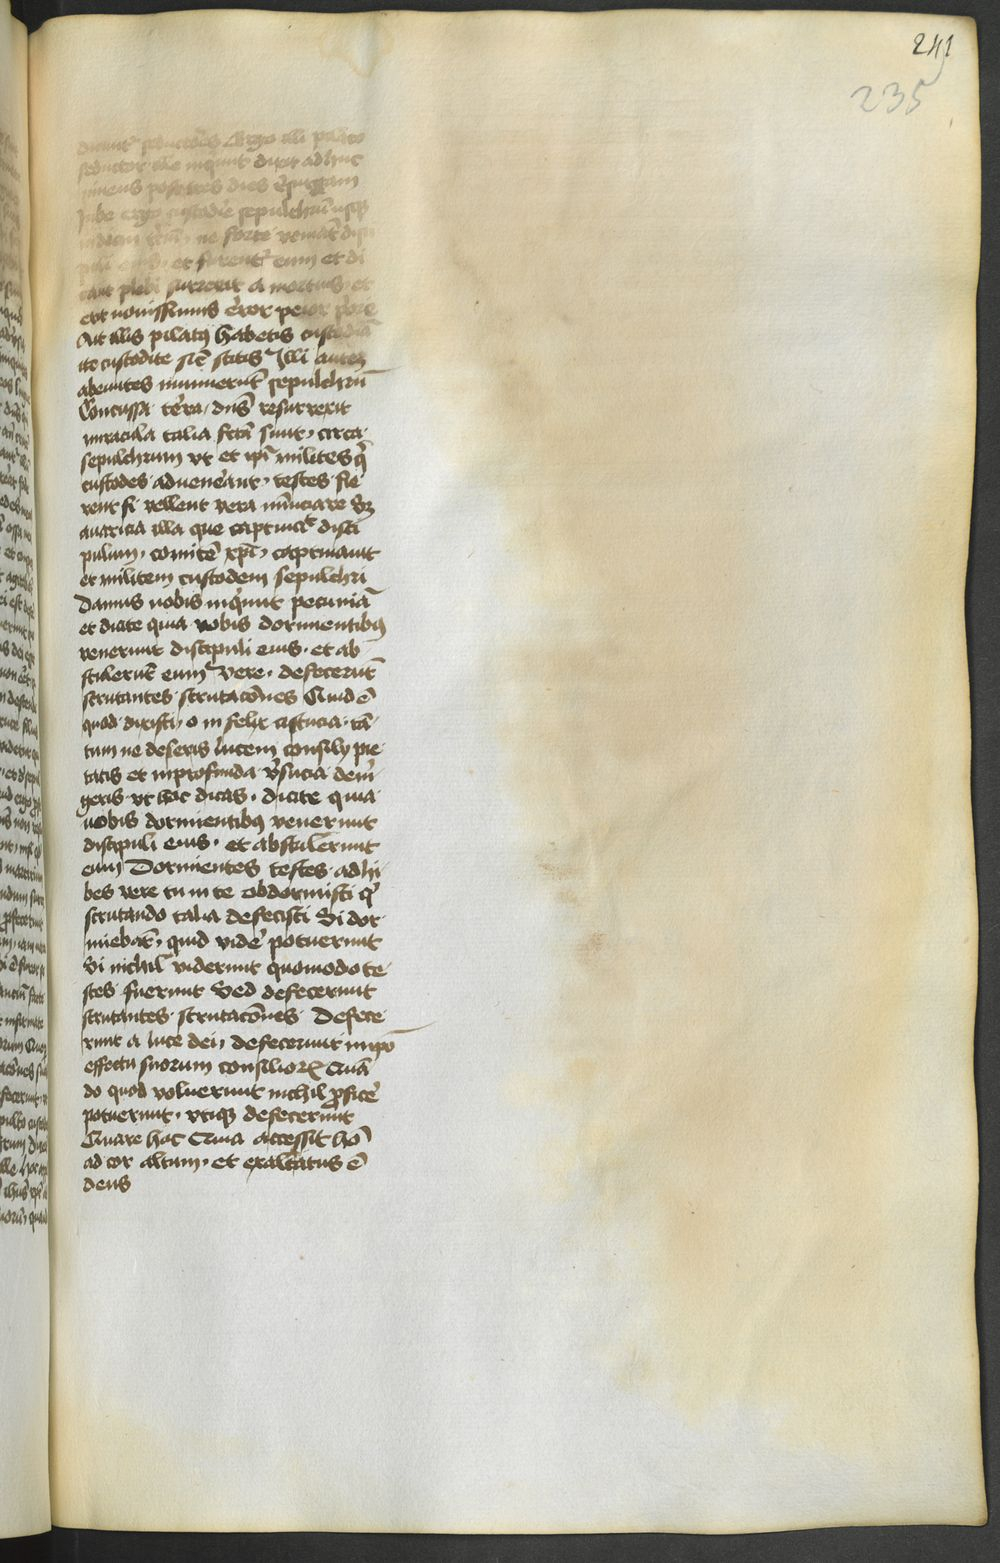 241
235
dicunt seductores Ergo illi pilato
seductor ille inquiunt dixit adhuc
vivens post tres dies resurgam
Jube ergo custodire sepulchrū usqȝ
in diem ne forte veniāt disci
puli eius et furent᷑ eum et di
cant plebi surrexit a mortuis et
erit nouissimus error peior priore
Ait illis pilatꝰ habetis custodiā
ite custodite sic̄ scitis Jlli autem
abeuntes munierūt sepulchrū
Concussa terra dn̄s resurrexit
miracula talia fc̄ā sunt circa
sepulchrum vt et ip̄i milites q̄
custodes aduenerant testes fie
rent si vellent vera nūciare Sȝ
auaricia illa que captiuāt disci
pulum comitē xp̄i captiuauit
et militem custodem sepulchri
Damus uobis inquiūt pecuniā
et dicite quia vobis dormientibꝰ
venerunt discipuli eius et ab
stulerūt eum Vere defecerūt
scrutantes scrutacōnes Quid ē
quod dixisti o infelix astucia tā
tum ne deseris lucem consilij pie
tatis et in profunda ṽsucia dem̄
geris vt hoc dicas dicite quia
uobis dormientibꝰ venerunt
discipuli eius et abstulerunt
eum Dormientes testes adhi
bes vere tu in te obdormisti q̇
scrutando talia defecisti Si dor
miebāt quid vide᷑ potuerunt
Si nichil viderunt quomodo te
stes fuerunt Sed defecerunt
scrutantes scrutacōnes Defece
runt a luce dei defecerunt in ip̄o
effectu suorum consilioꝝ Quā
do quod voluerunt nichil ꝓfice᷑
potuerunt vtiqȝ defecerunt
Quare hoc Quia accessit hō
ad cor altum et exaltatus ē
deus